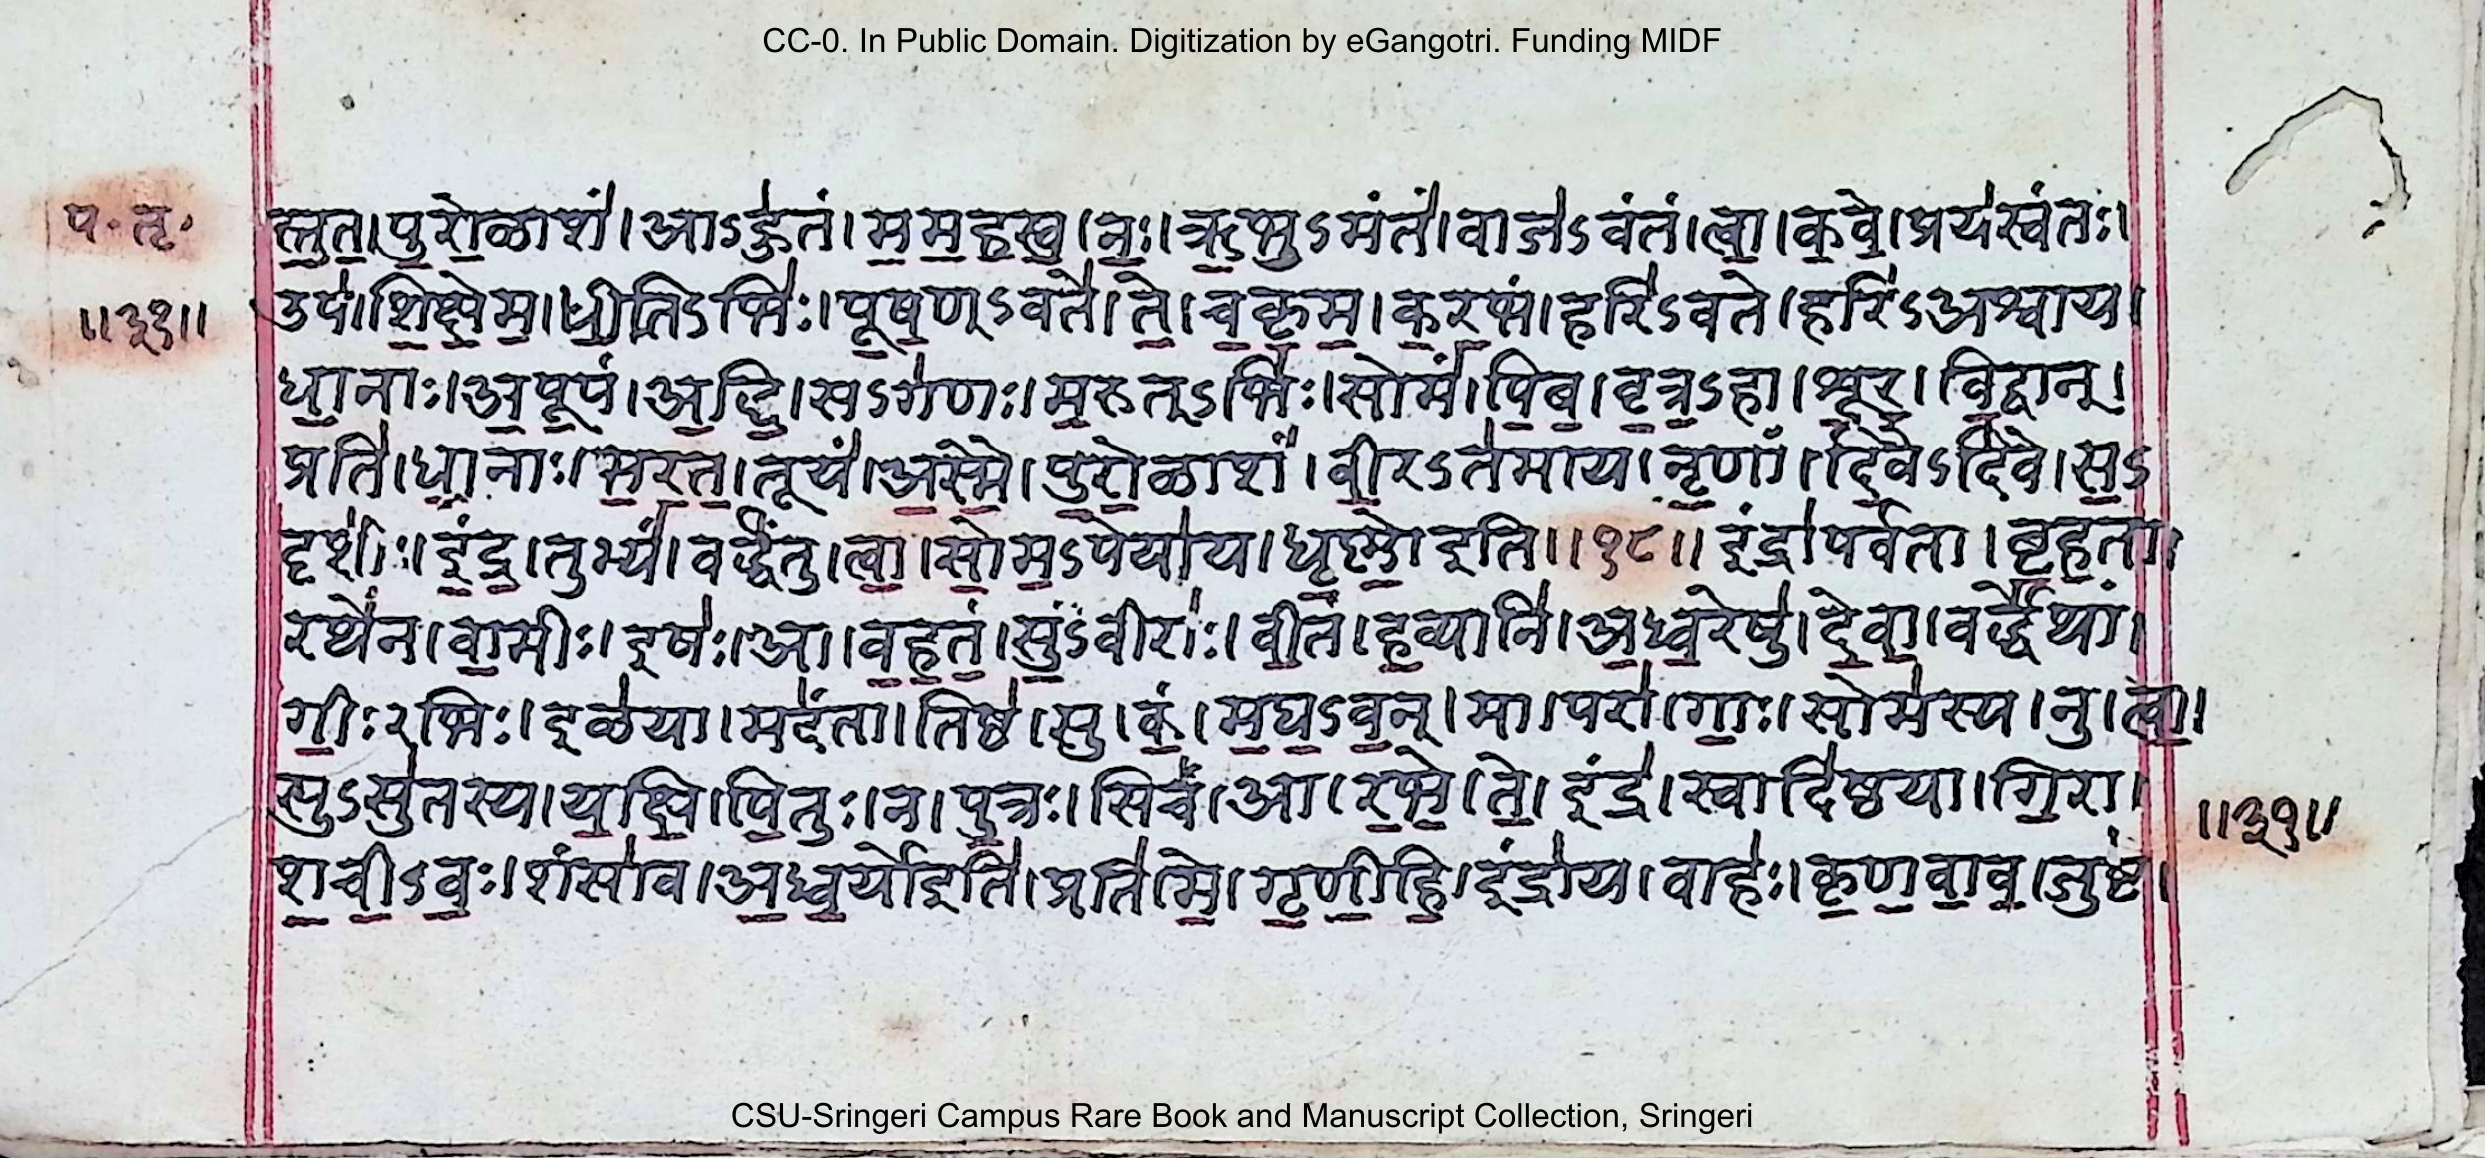 CC-0. In Public Domain. Digitization by eGangotri. Funding MIDF
प॰ तृ॰
॥३१॥
स्तु॒त॒।पु॒रो॒ळाशं॑।आऽहु॑तं।म॒म॒ह॒स्व॒।नः॒।ऋ॒भु॒ऽमंतं॑।वाज॑ऽवंतं।त्वा॒।क॒वे॒।प्रय॑स्वंतः।
उप॑।शि॒क्षे॒म॒।धी॒तिऽभिः॑।पू॒ष॒ण्ऽवते॑।ते॒।च॒कृ॒म॒।क॒र॒भं।हरि॑ऽवते।हरि॑ऽअश्वाय।
धा॒नाः।अ॒पू॒पं।अ॒द्धि॒।सऽग॑णः।म॒रुत्ऽभिः॑।सोमं॑।पि॒ब॒।वृ॒त्र॒ऽहा।शू॒र॒।वि॒द्वान्।
प्रति॑।धा॒नाः।भ॒र॒त॒।तूयं॑।अ॒स्मै॒।पु॒रो॒ळाशं॑।वी॒रऽत॑माय।नृ॒णां।दि॒वेऽदि॑वे।स॒ऽ
दृशीः॑।इं॒द्र॒।तुभ्यं॑।वर्द्धं॑तु।त्वा॒।सो॒म॒ऽपेया॑य।धृ॒ष्णो॒इति॑॥१८॥इंद्रा॑पर्वता।बृ॒ह॒ता।
रथे॑न।वा॒मीः।इषः॑।आ।व॒ह॒तं॒।सु॒ऽवीराः॑।वी॒तं।ह॒व्यानि॑।अ॒ध्व॒रेषु॑।दे॒वा॒।वर्द्धे॑थां।
गीः॒ऽभिः।इळ॑या।मदं॑ता।तिष्ठ॑।सु।कं॒।म॒घ॒ऽव॒न्।मा।परा॑।गाः॒।सोम॑स्य।नु।त्वा॒।
सुऽसु॑तस्य।य॒क्षि॒।पि॒तुः।न।पु॒त्रः।सिचं॑।आ।र॒भे॒।ते॒।इंद्र॑।स्वादि॑ष्ठया।गि॒रा।
श॒ची॒ऽवः॒।शंसा॑व।अ॒ध्व॒र्यो॒इति॑।प्रति॑।मे॒।गृ॒णी॒हि॒।इंद्रा॑य।वाहः॑।कृ॒ण॒वा॒व॒।जुष्टं॑।
॥३१॥
CSU-Sringeri Campus Rare Book and Manuscript Collection, Sringeri